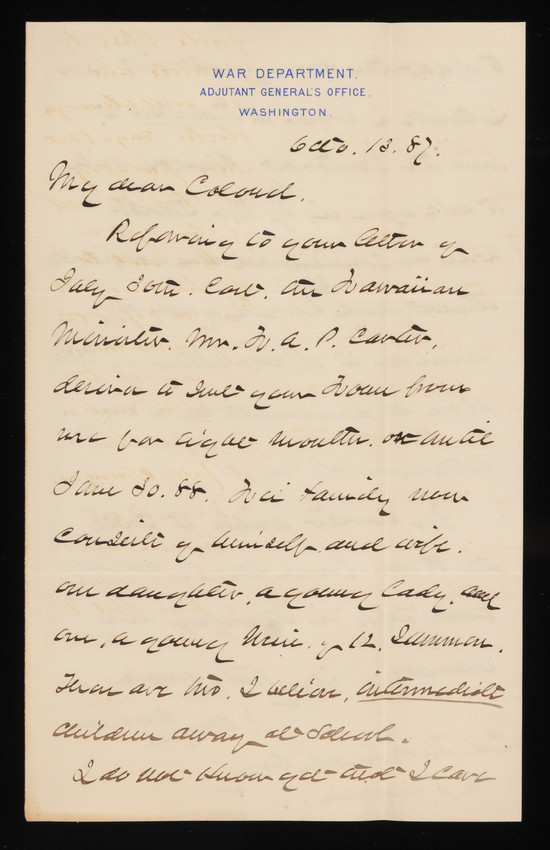 WAR DEPARTMENT.
ADJUTANT GENERAL'S OFFICE.
WASHINGTON.
Octo. 13. 87.
My dear Colonel.
Referring to your letter of
July 30th. last. the Hawaiian
Minister. Mr. H. A. P. Carter.
desires to rent your House from
me for eight months. or until
June 30. 88. His family now
consists of himself and wife.
one daughter, a young lady, and
one, a young Miss of 12. Summers.
There are two, I believe, intermediate
children away at School.
I do not know yet that I care